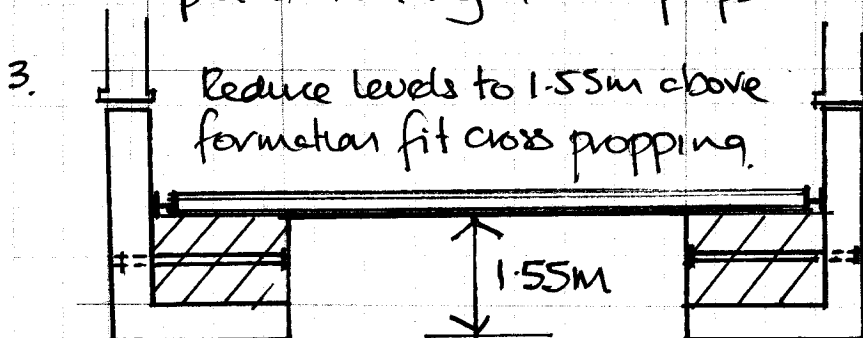 3. Reduce levels to 1.55m above
formation fit cross propping.
1.55m